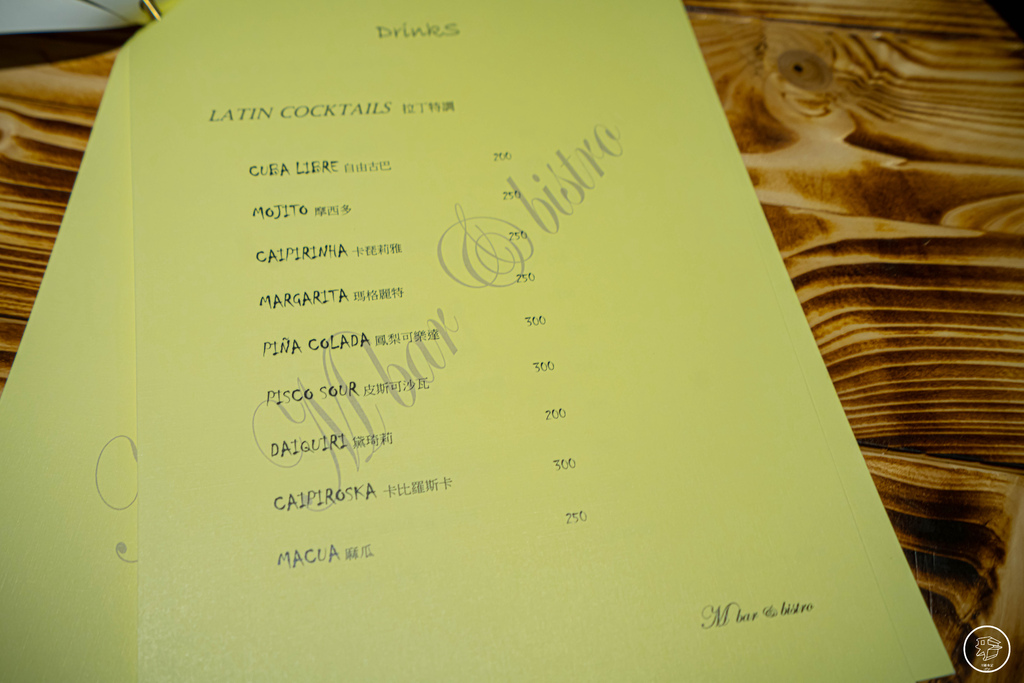 Drinks
LATIN COCKTAILS 拉丁特調
CUBA LIBRE 自由古巴 200
MOJITO 摩西多 250
CAIPIRINHA 卡琵莉雅 250
MARGARITA 瑪格麗特 250
PIÑA COLADA 鳳梨可樂達 300
PISCO SOUR 皮斯可沙瓦 300
DAIQUIRI 黛琦莉 200
CAIPIROSKA 卡比羅斯卡 300
MACUA 麻瓜 250
M bar & bistro
M bar & bistro